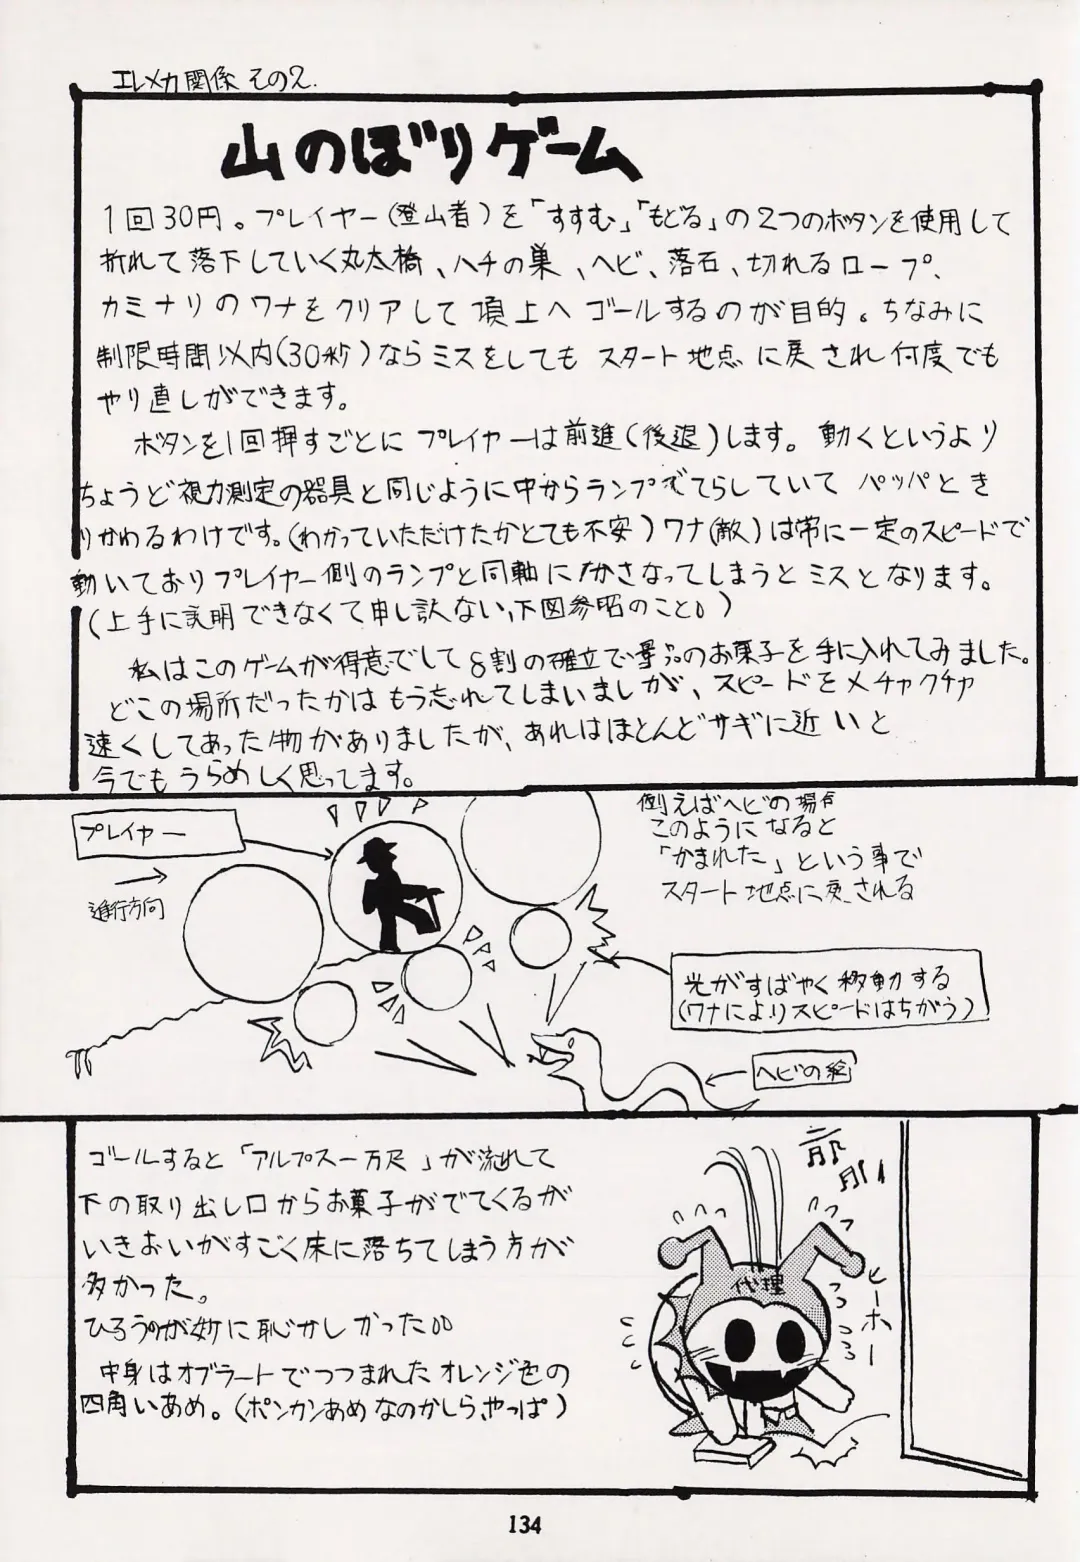 エレメカ関係 その2.
山のぼりゲーム
1回30円。プレイヤー(登山者)を「すすむ」「もどる」の2つのボタンを使用して
折れて落下していく丸太橋、ハチの巣、ヘビ、落石、切れるロープ、
カミナリのワナをクリアして頂上へゴールするのが目的。ちなみに
制限時間以内(30秒)ならミスをしてもスタート地点に戻され何度でも
やり直しができます。
ボタンを1回押すごとにプレイヤーは前進(後退)します。動くというより
ちょうど視力測定の器具と同じように中からランプでてらしていてパッパとき
りかわるわけです。(わかっていただけたかとても不安)ワナ(敵)は常に一定のスピードで
動いておりプレイヤー側のランプと同軸にかさなってしまうとミスとなります。
(上手に説明できなくて申し訳ない、下図参照のこと。)
私はこのゲームが得意でして8割の確立で景品のお菓子を手に入れてみました。
どこの場所だったかはもう忘れてしまいましが、スピードをメチャクチャ
速くしてあった物がありましたが、あれはほとんどサギに近いと
今でもうらめしく思ってます。
プレイヤー
進行方向
例えばヘビの場合
このようになると
「かまれた」という事で
スタート地点に戻される
光がすばやく移動する
(ワナによりスピードはちがう)
ヘビの絵
ゴールすると「アルプス一万尺」が流れて
下の取り出し口からお菓子がでてくるが
いきおいがすごく床に落ちてしまう方が
多かった。
ひろうのが妙に恥かしかった。。
中身はオブラートでつつまれたオレンジ色の
四角いあめ。(ポンカンあめなのかしら、やっぱ)
代理
ヒーホー
134